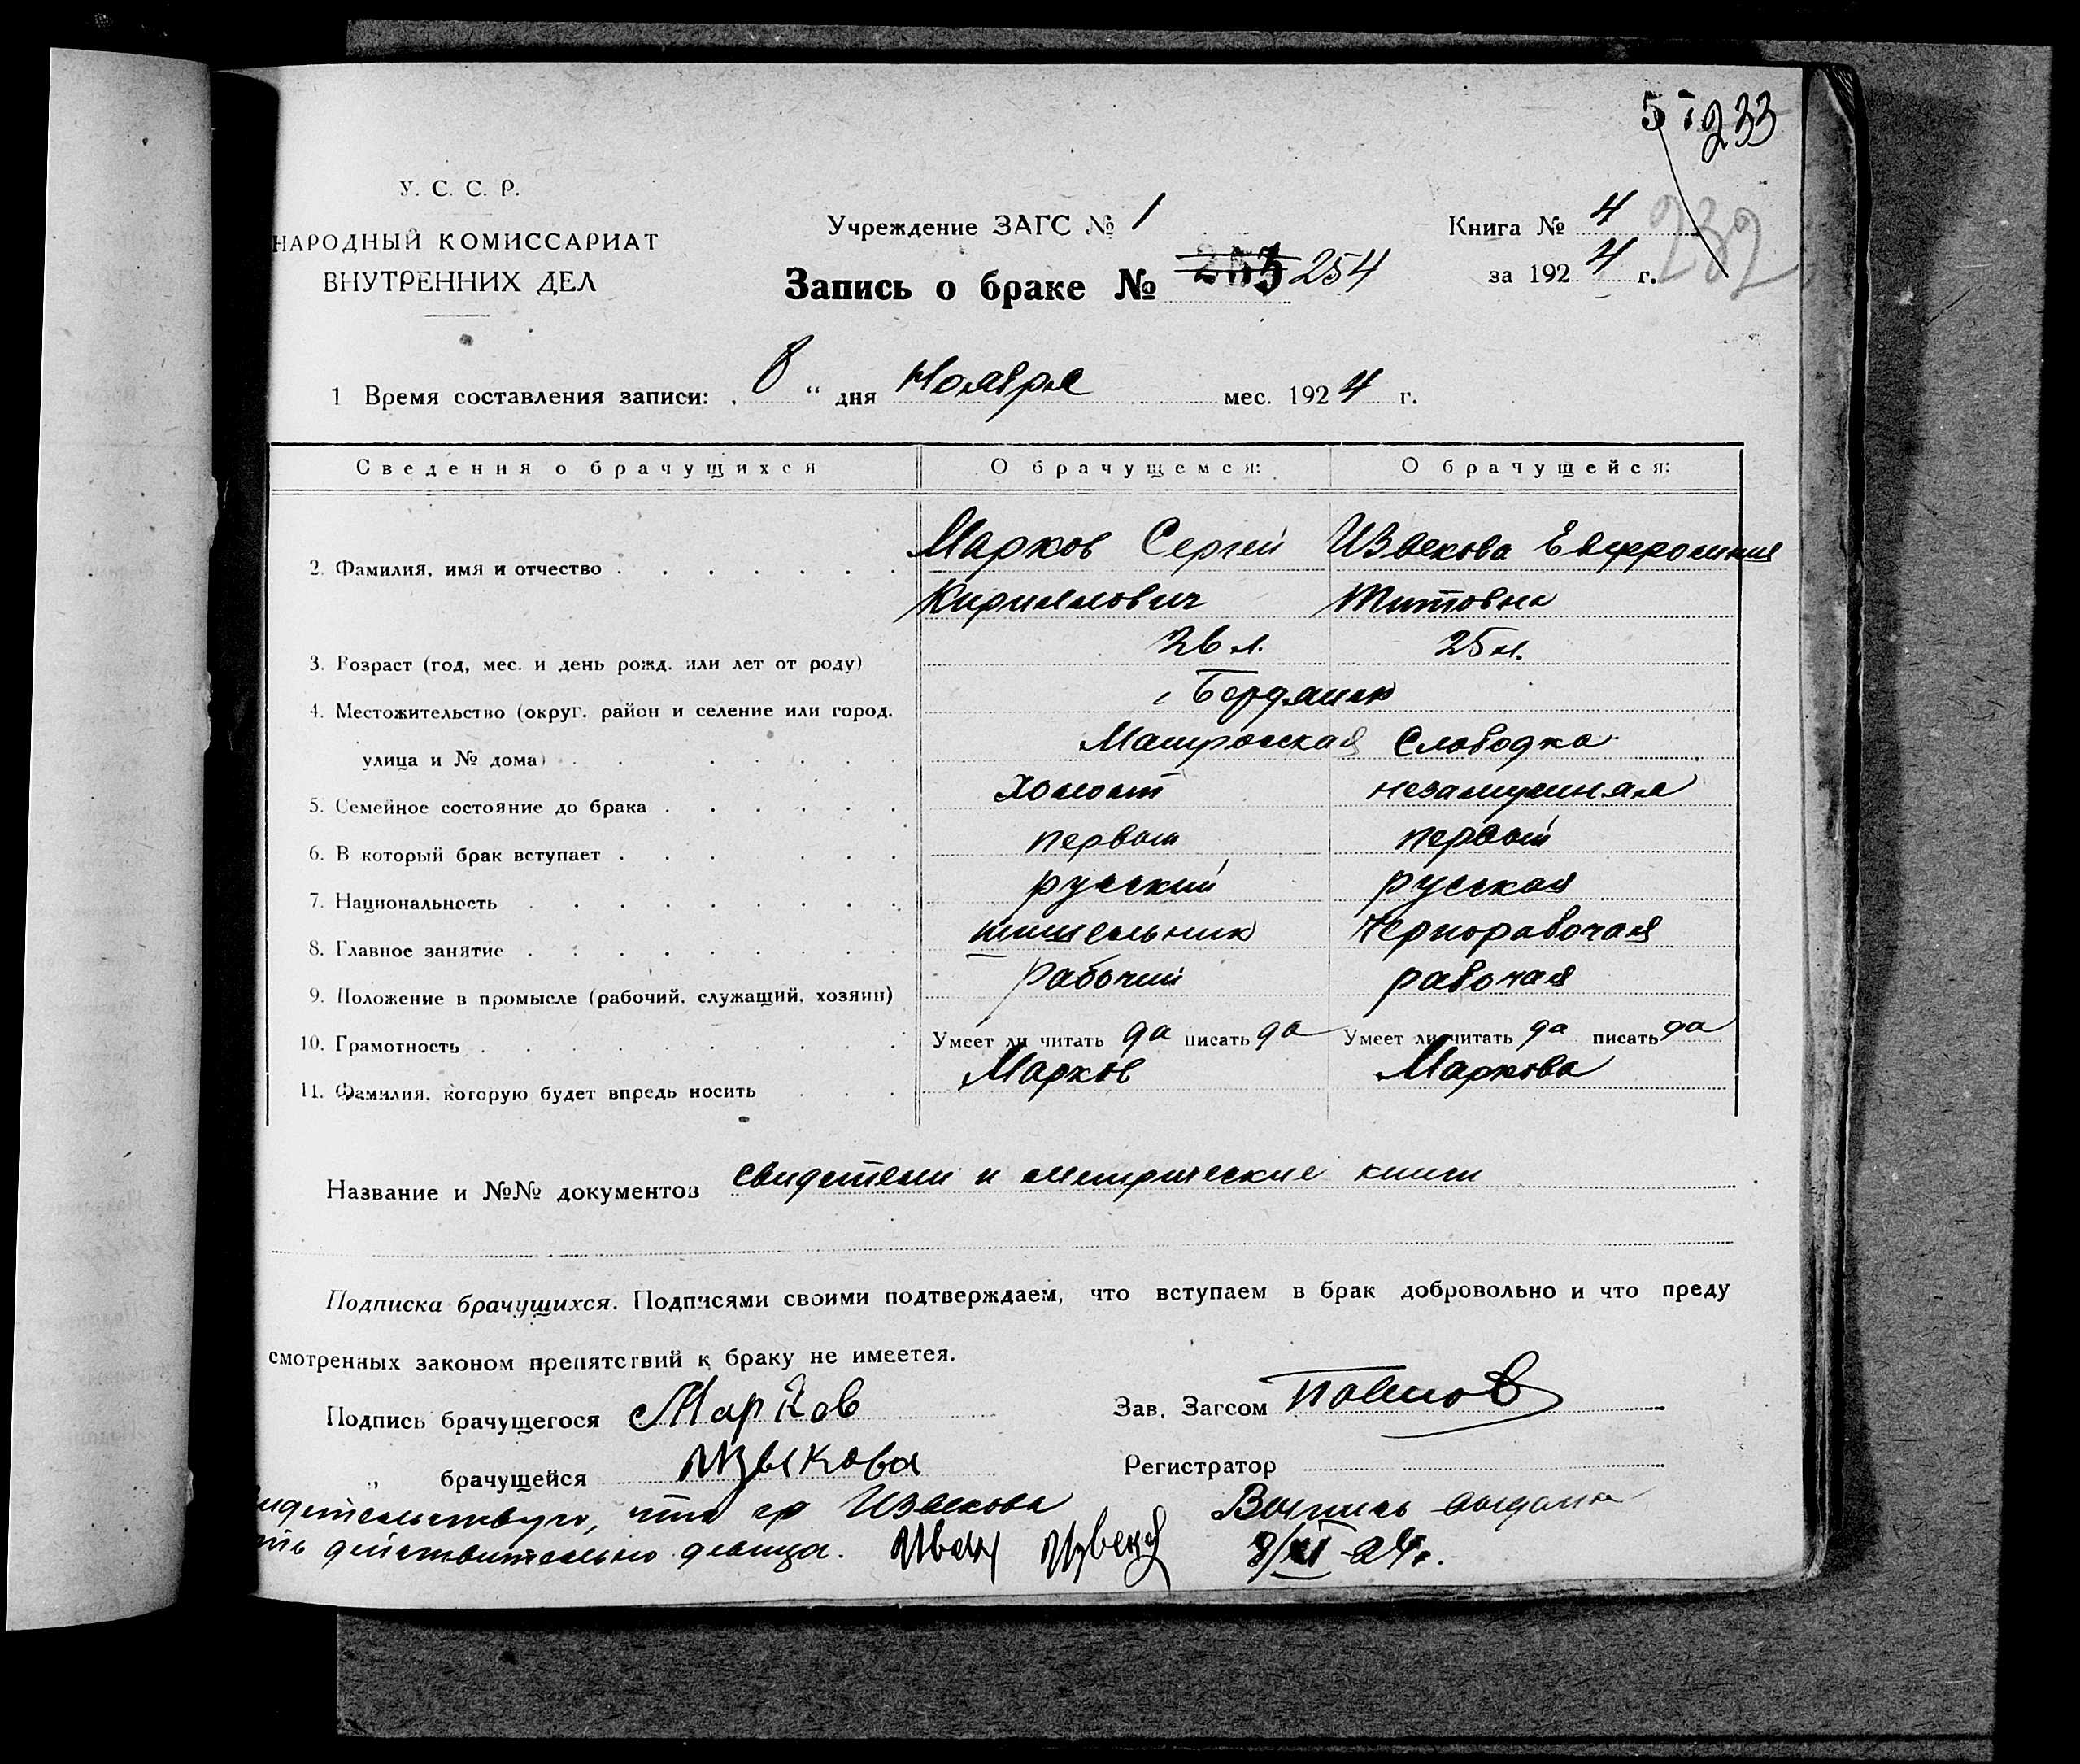 233
У. С. С. Р.
НАРОДНЫЙ КОМИССАРИАТ
ВНУТРЕННИХ ДЕЛ
Учреждение ЗАГС № 1
Запись о браке № 253 254
Книга № 4
232
за 1924 г.
1 Время составления записи: „ 8 “ дня Ноября мес. 1924 г.
Сведения о брачущихся О брачущемся: О брачущейся:
2. Фамилия, имя и отчество Марков Сергей Извекова Евфросиния
Кириллович Титовна
3. Возраст (год, мес. и день рожд. или лет от роду) 26 л. 25 л.
4. Местожительство (округ, район и селение или город, г. Бердянск
улица и № дома) Матросская Слободка
5. Семейное состояние до брака холост незамужняя
6. В который брак вступает первый первый
7. Национальность русский русская
8. Главное занятие Чернорабочая
9. Положение в промысле (рабочий, служащий, хозяин) Рабочий рабочая
10. Грамотность Умеет ли читать да писать да Умеет ли читать да писать да
11. Фамилия, которую будет впредь носить Марков Маркова
Название и №№ документов свидетели и метрические книги
Подписка брачущихся. Подписями своими подтверждаем, что вступаем в брак добровольно и что преду
смотренных законом препятствий к браку не имеется.
Подпись брачущегося Марков Зав. Загсом
„ брачущейся Извекова Регистратор
идетельствую, что гр Извекова Выпись выдана
ть действительно девица. Иван Извеков 8/XI-24г.